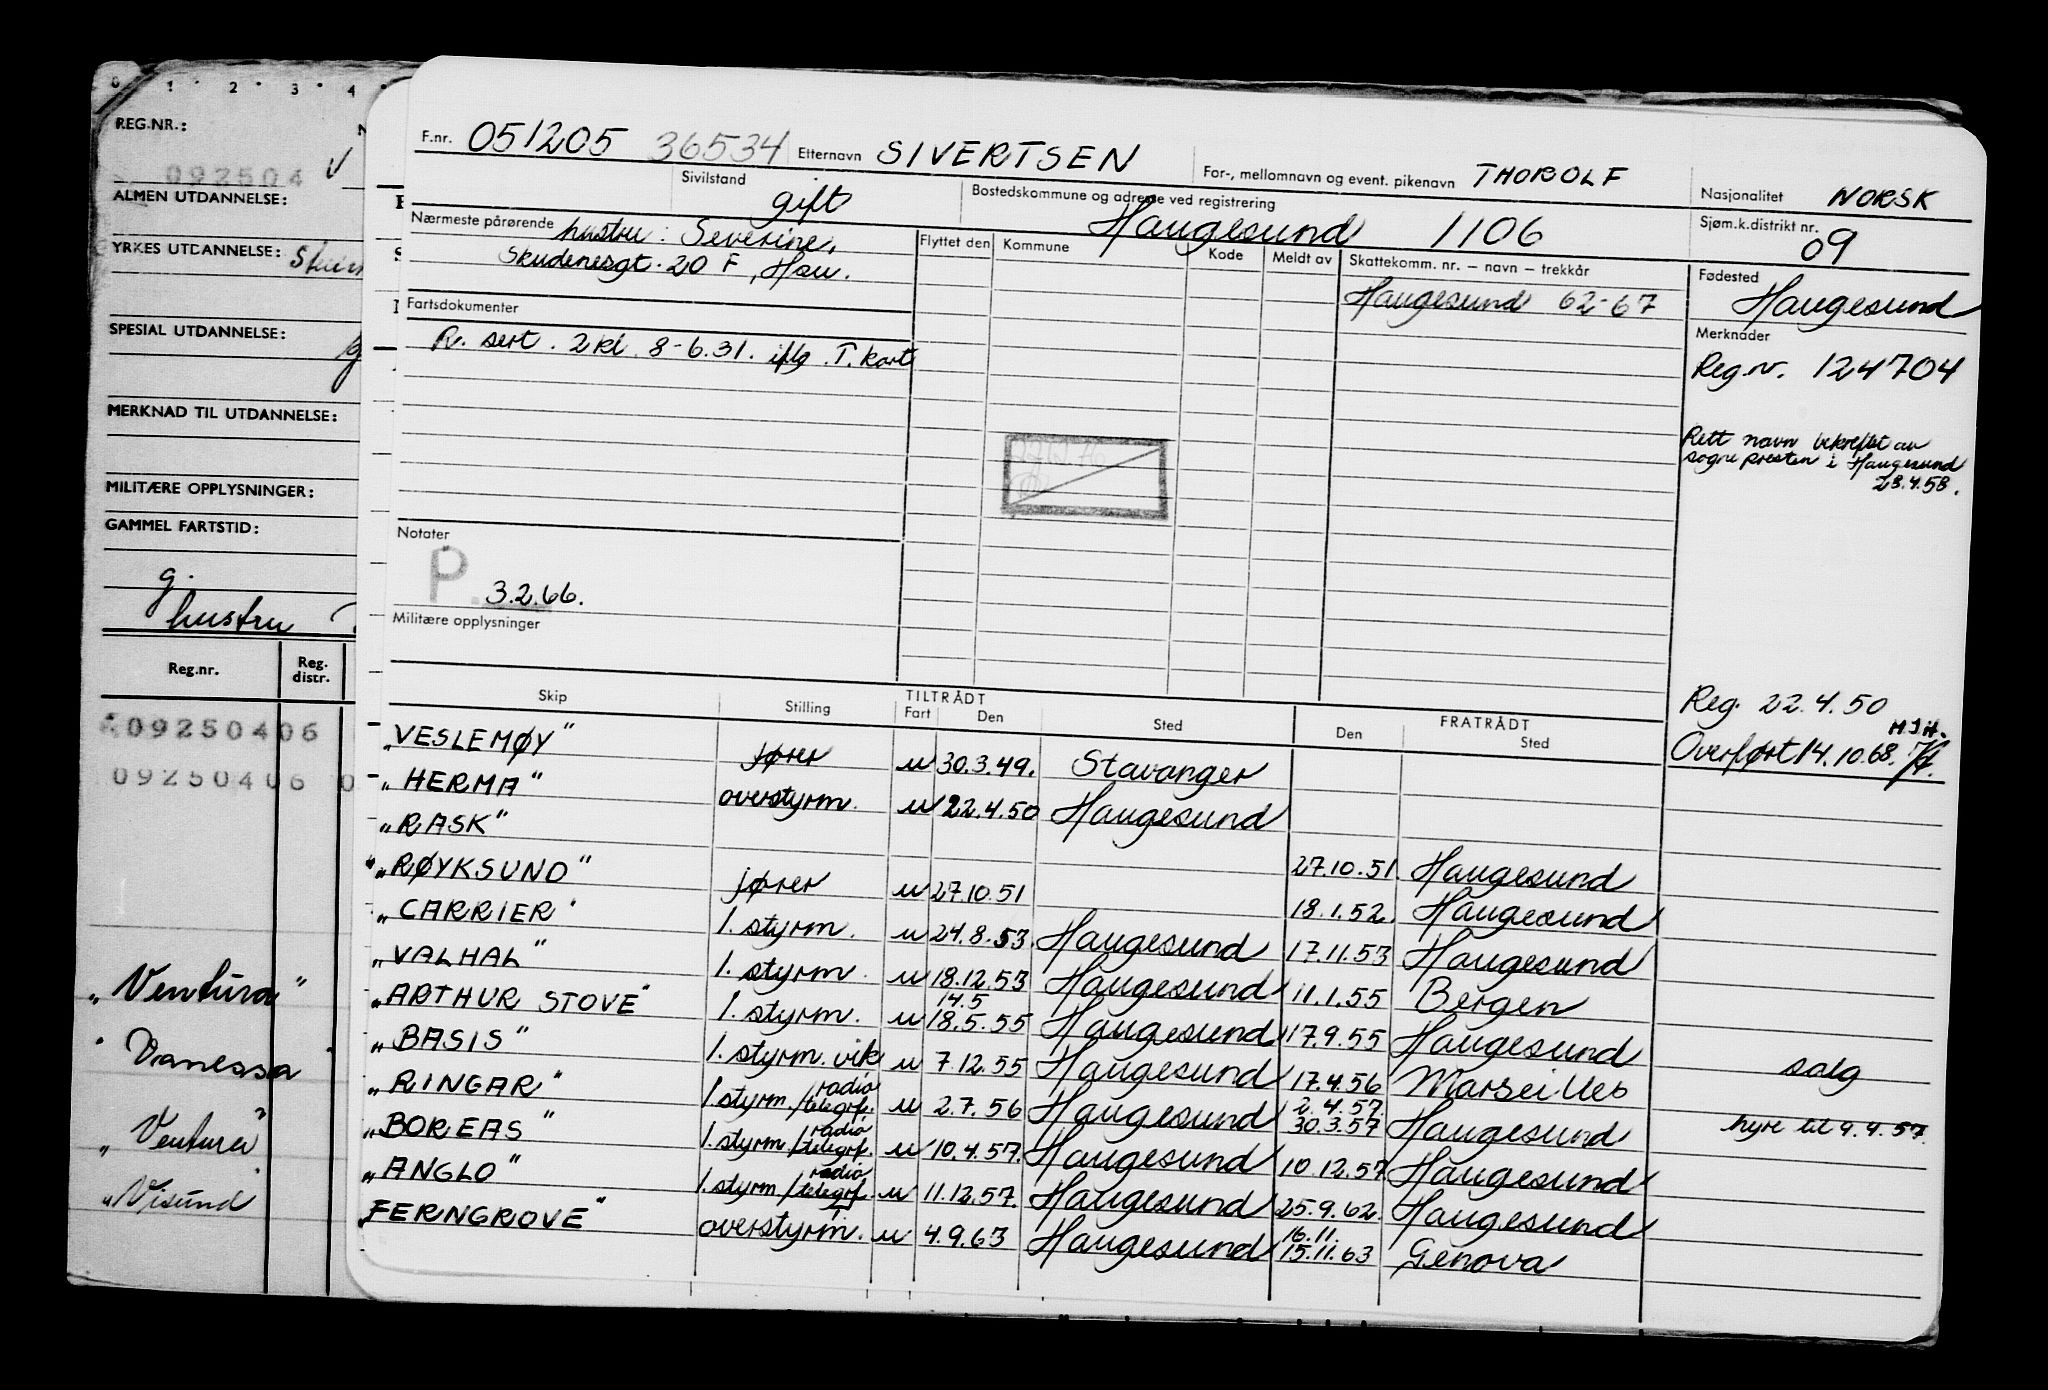 0 1 2 3 4
REG.NR.:
092504
ALMEN UTDANNELSE:
YRKES UTDANNELSE:
SPESIAL UTDANNELSE:
MERKNAD TIL UTDANNELSE:
MILITÆRE OPPLYSNINGER:
GAMMEL FARTSTID:
g.
hustru
Reg.nr. Reg. distr.
09250406
09250406 0
„Ventura"
"Vanessa"
„Ventura"
„Visund"
F.nr. 051205 36534 Etternavn SIVERTSEN For-, mellomnavn og event. pikenavn THOROLF Nasjonalitet NORSK
Sivilstand gift Bostedskommune og adresse ved registrering Haugesund 1106 Sjøm.k.distrikt nr. 09
Nærmeste pårørende hustru: Severine,
Skudenesgt. 20 F, Hau.
Flyttet den Kommune Kode Meldt av Skattekomm. nr. – navn – trekkår
Haugesund 62-67
Fødested Haugesund
Fartsdokumenter
R. sert. 2 kl. 8-6.31. iflg. T. kort
Merknader
Reg.nr. 124704
Rett navn bekreftet av
sognepresten i Haugesund
28.4.58.
Notater
P. 3.2.66.
Militære opplysninger
Reg. 22.4.50
Overført 14.10.68.
Skip Stilling TILTRÅDT Fart Den Sted FRATRÅDT Den Sted
„VESLEMØY" jører u 30.3.49. Stavanger
„HERMA" overstyrm. u 22.4.50 Haugesund
„RASK" 27.10.51. Haugesund
„RØYKSUND" jører u 27.10.51 18.1.52. Haugesund
„CARRIER" 1. styrm. u 24.8.53. Haugesund 17.11.53 Haugesund
„VALHAL" 1. styrm. u 18.12.53 Haugesund 11.1.55 Bergen
„ARTHUR STOVE" 1. styrm. u 14.5 18.5.55 Haugesund 17.9.55 Haugesund
„BASIS" 1. styrm. vik u 7.12.55 Haugesund 17.4.56 Marseilles salg
„RINGAR" 1. styrm./radio telegrf. u 2.7.56 Haugesund 2.4.57. 30.3.57 Haugesund hyre til 9.4.57.
„BOREAS" 1. styrm./radio telegrf. u 10.4.57. Haugesund 10.12.57 Haugesund
„ANGLO" 1. styrm./radio telegrf. u 11.12.57. Haugesund 25.9.62. Haugesund
„FERNGROVE" overstyrm. u 4.9.63 Haugesund 16.11. 15.11.63 Genova